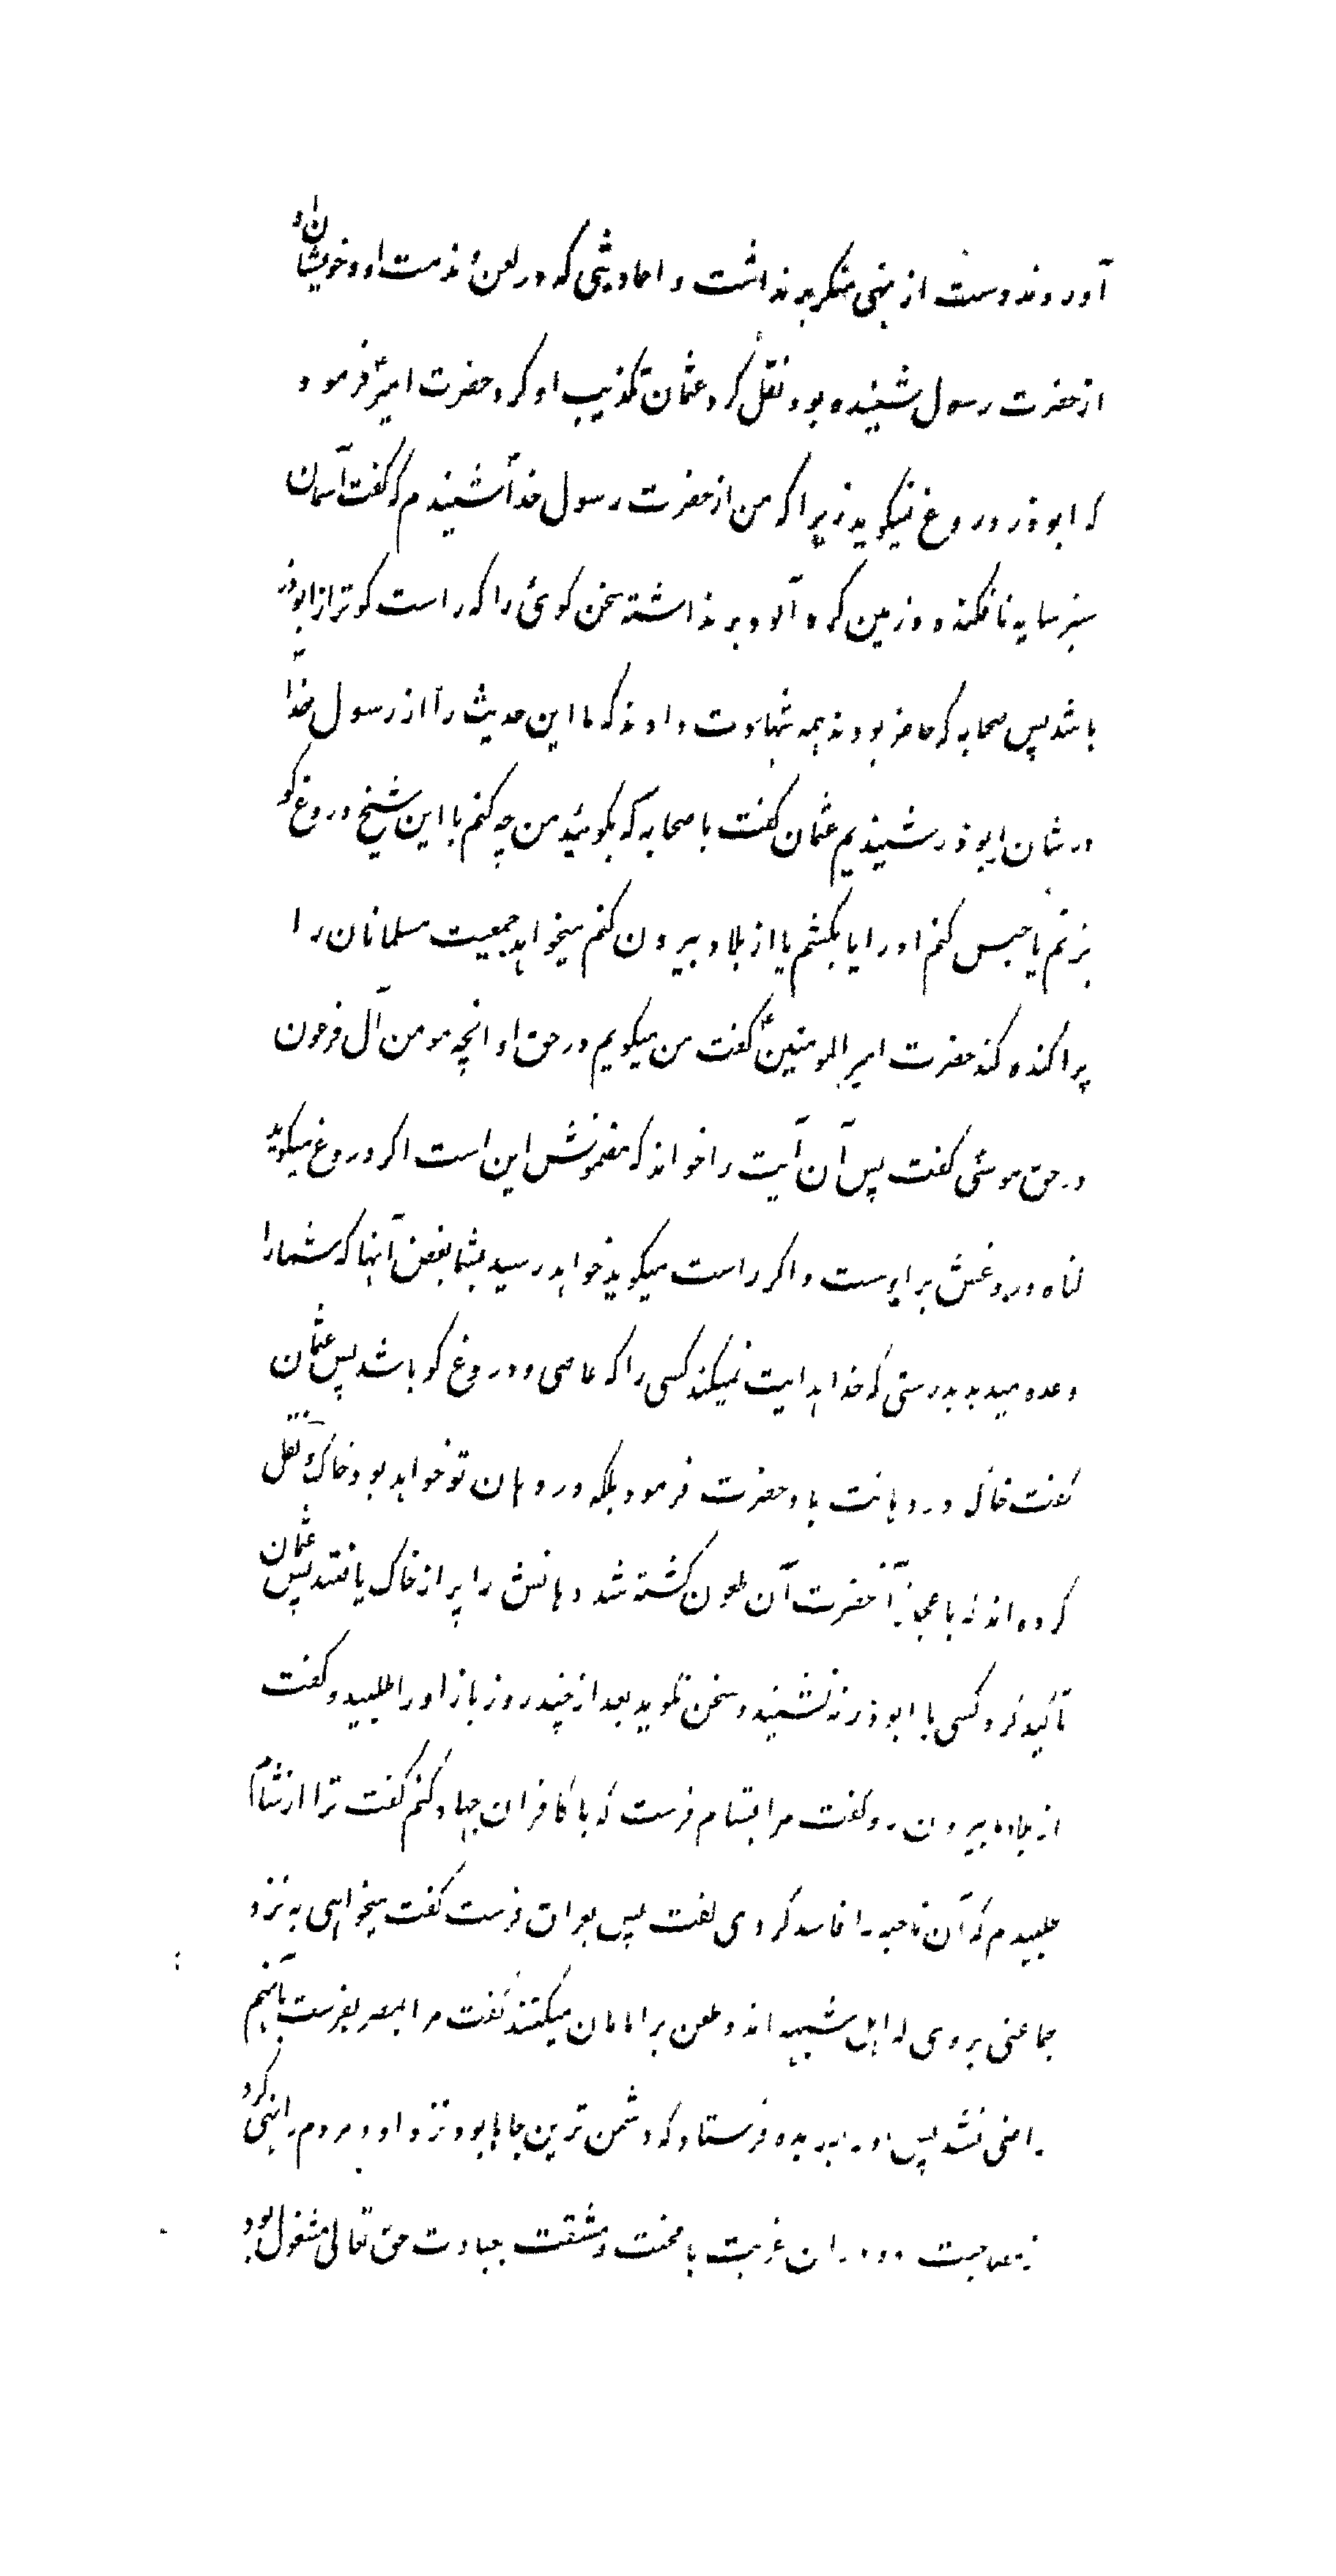 آوردند و دست از نهی منکر برنداشت و احادیثی که در لعن و مذمت او و خویشان او
از حضرت رسول شنیده بود نقل کرد و عثمان تکذیب او کرد حضرت امیرؑ فرمود
که ابوذر دروغ نمیکوید زیرا که من از حضرت رسول خداؐ شنیدم که گفت آسمان
سبز سایه نافکنده و زمین کرد آلود برنداشته سخن کوئی را که راست کوتر از ابوذر
باشد پس صحابه که حاضر بودند همه شهادت دادند که ما این حدیث را از رسول خداؐ
در شان ابوذر شنیدیم عثمان کفت با صحابه که بکوئید من چه کنم با این شیخ دروغ کو
بزنم یا حبس کنم اورا یا بکشم یا از بلاد بیرون کنم میخواهد جمعیت مسلمانان را
پراکنده کند حضرت امیرالمومنینؑ کفت من میکویم در حق او انچه مومن آل فرعون
در حق موسیٰ کفت پس آن آیت را خواند که مضمونش این است اکر دروغ میکوید
کناه دروغش بر اوست و اکر راست میکوید خواهد رسید بشما بعض آنها که شما را
وعده میدهد بدرستی که خدا هدایت نمیکند کسی را که عاصی و دروغ کو باشد پس عثمان
کفت خاک در دهانت باد حضرت فرمود بلکه در دهان تو خواهد بود خاک و نقل
کرده اند که باعجاز آنحضرت آن ملعون کشته شد دهانش را پر از خاک یافتند پس عثمان
تاکید کرد کسی با ابوذر ننشیند و سخن نکوید بعد از چند روز باز اورا طلبید و کفت
از بلاد ما بیرون رو کفت مرا بشام فرست که با کافران جهاد کنم کفت ترا از شام
طلبیدم که آن ناحیه را فاسد کردی کفت پس بعراق فرست کفت میخواهی به نزد
جماعتی بروی که اهل شبهه اند و طعن بر امامان میکنند کفت مرا بمصر بفرست بآنهم
راضی نشد پس اورا بربذه فرستاد که دشمن ترین جاها بود نزد او و مردم را نهی کرد
از مصاحبت او و در ان غربت با محنت و مشقت بعبادت حق تعالی مشغول بود